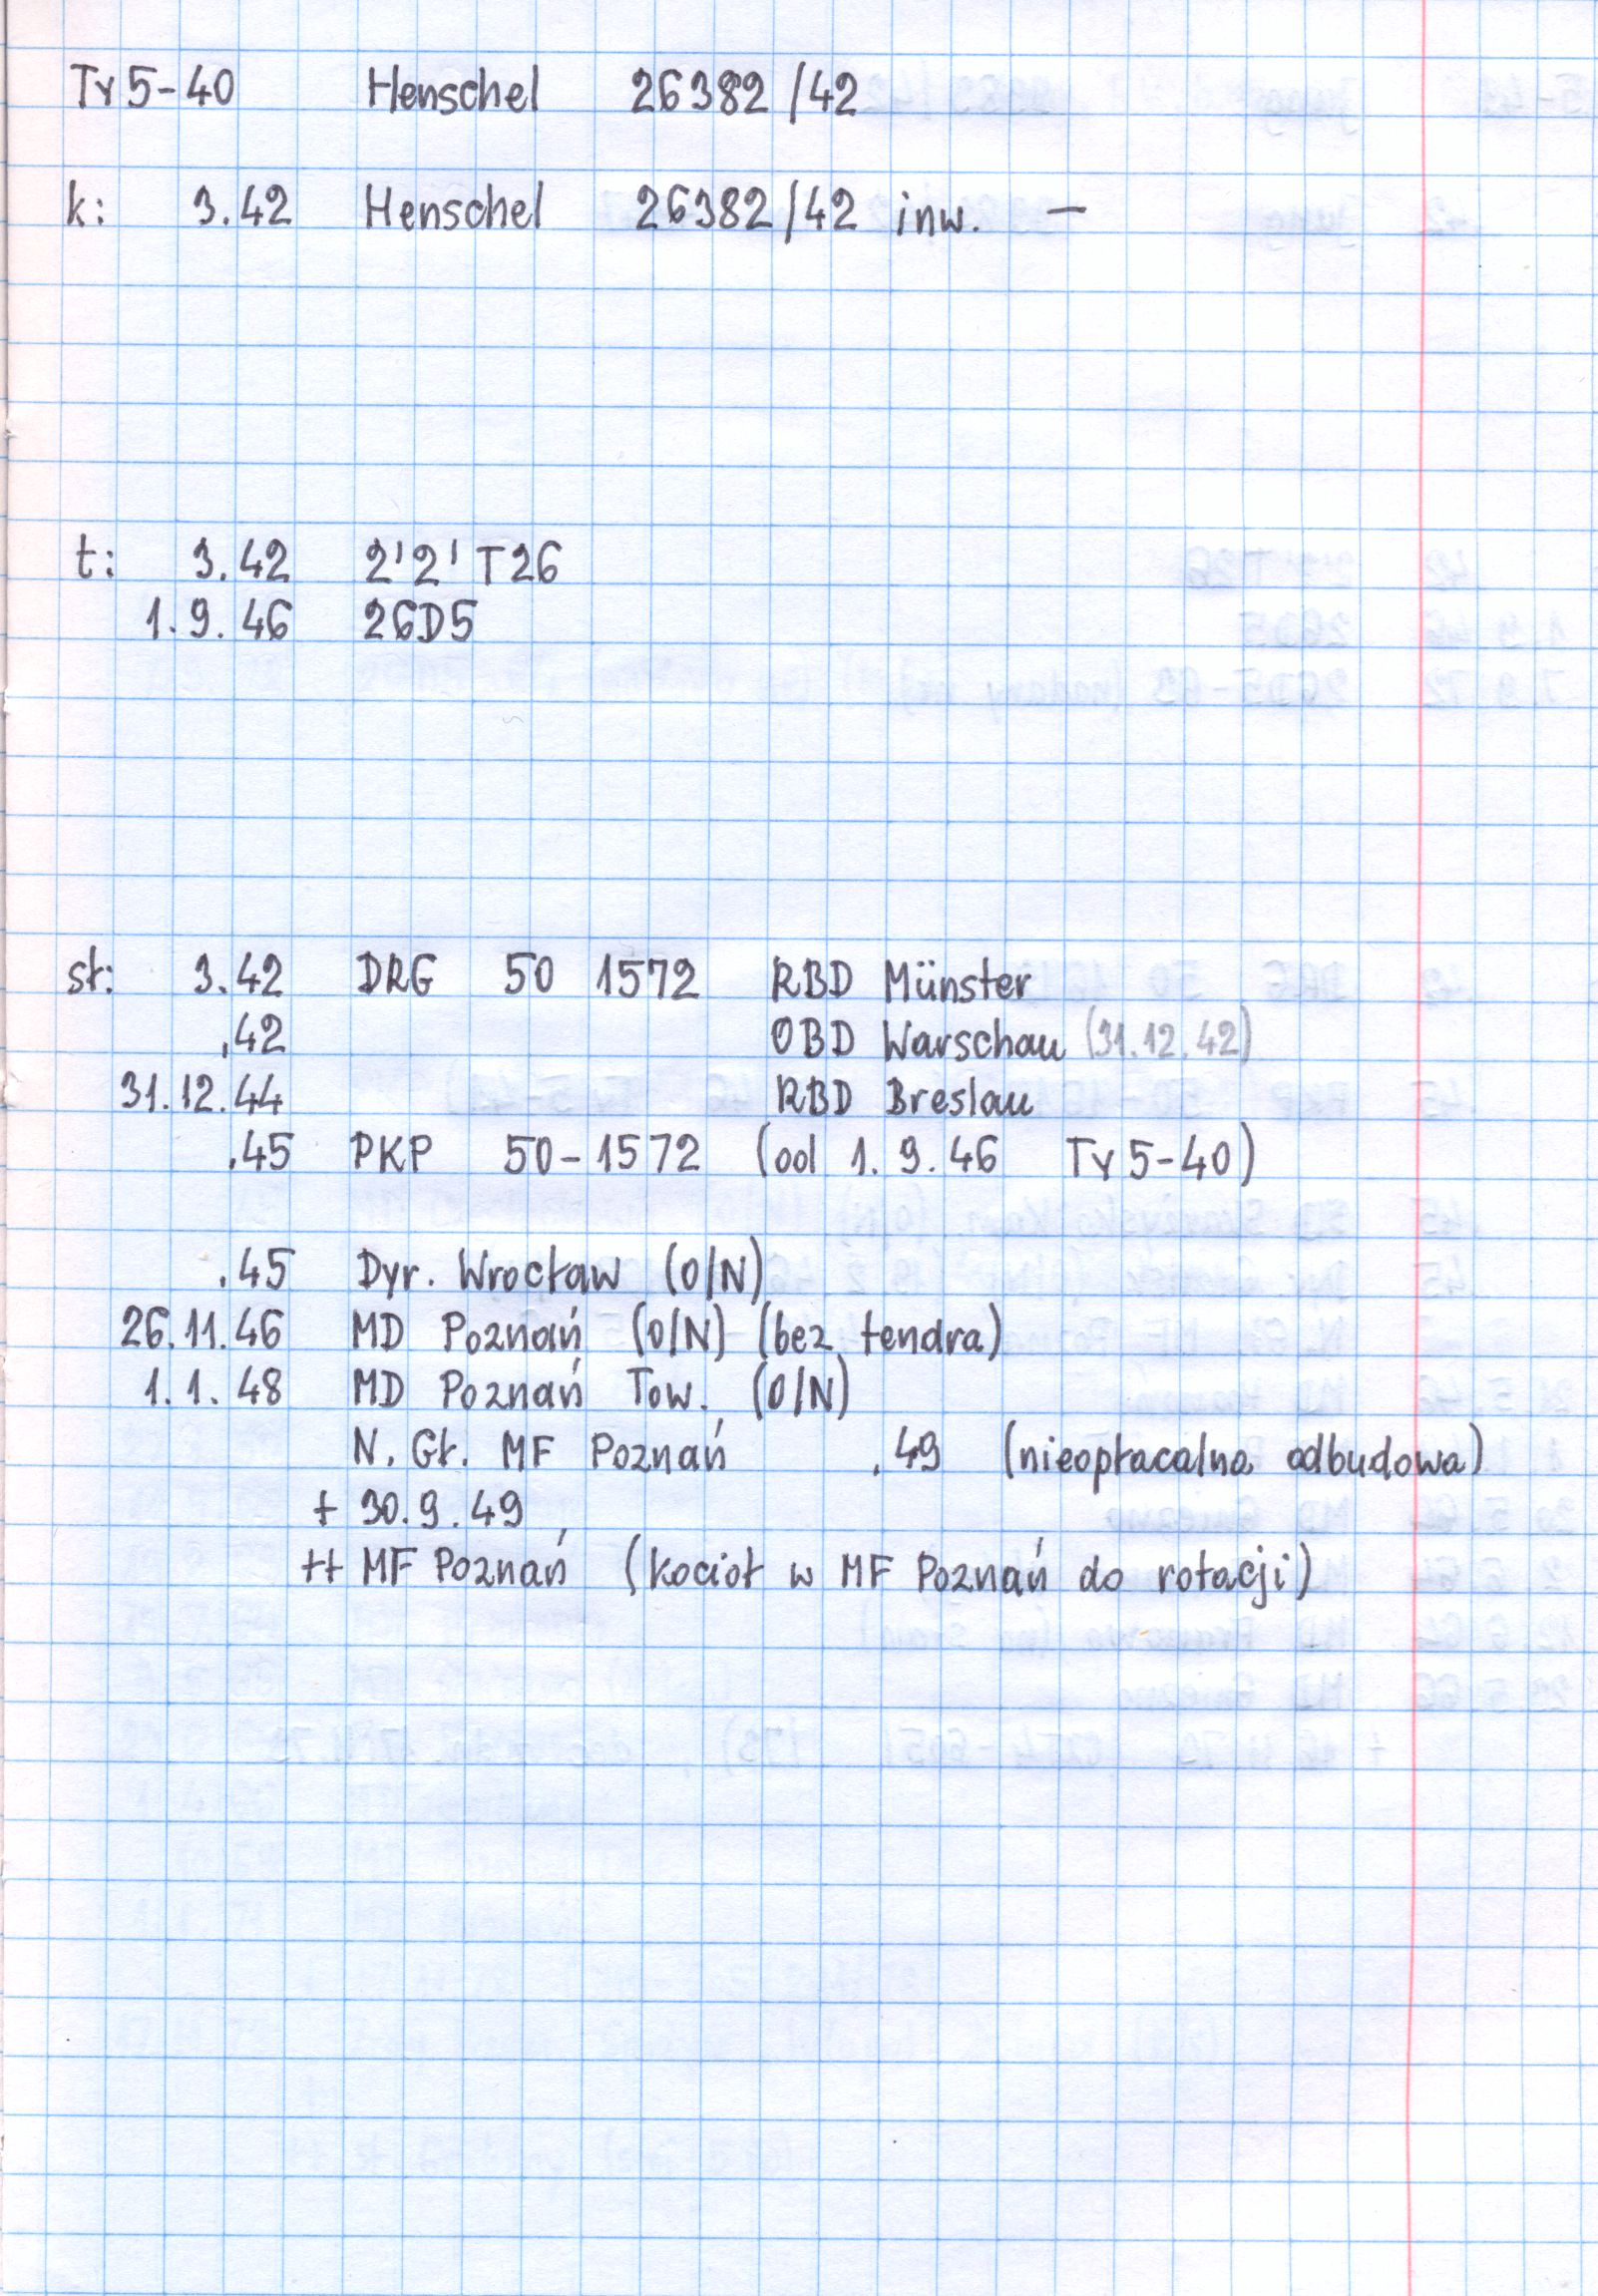 Ty5-40 Henschel 26382/42
k: 3.42 Henschel 26382/42 inw. –
t: 3.42 2'2'T26
1.9.46 26D5
st: 3.42 DRG 50 1572 RBD Münster
.42 OBD Warschau (31.12.42)
31.12.44 RBD Breslau
.45 PKP 50-1572 (od 1.9.46 Ty5-40)
.45 Dyr. Wrocław (O/N)
26.11.46 MD Poznań (O/N) (bez tendra)
1.1.48 MD Poznań Tow. (O/N)
N. Gł. MF Poznań .49 (nieopłacalna odbudowa)
+ 30.9.49
++ MF Poznań (kocioł w MF Poznań do rotacji)